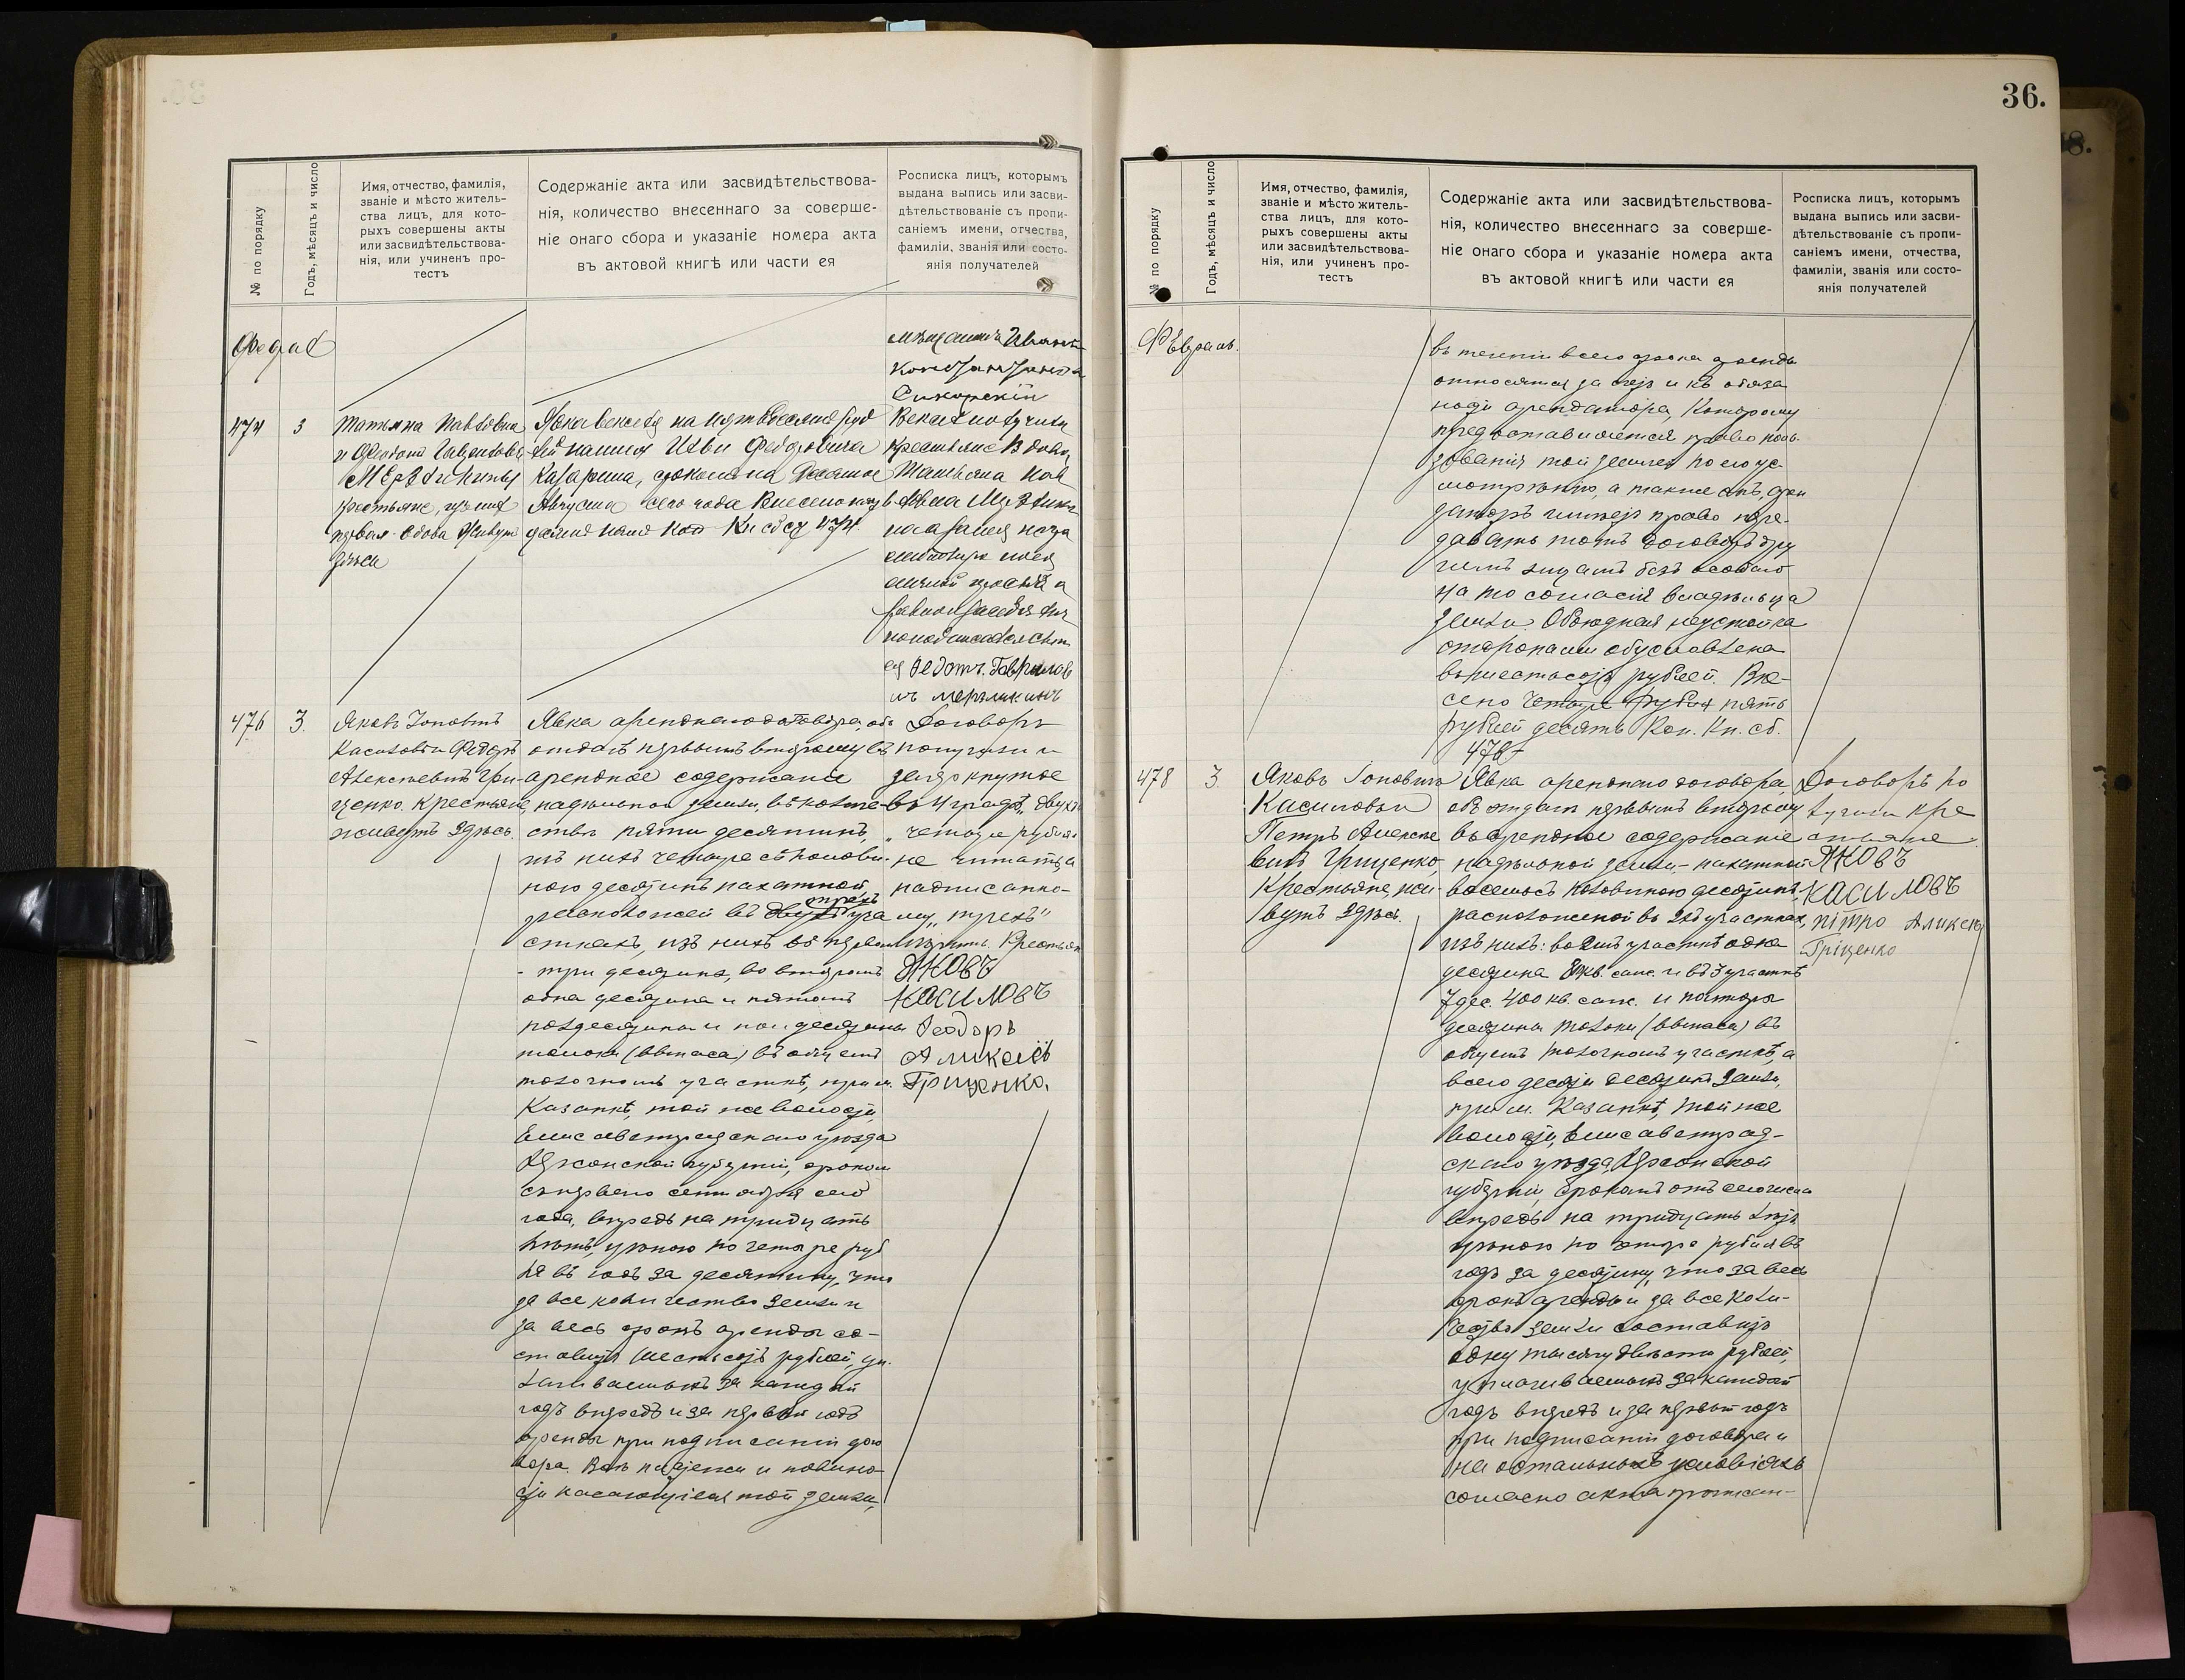 36.
№ по порядку
Годъ, мѣсяцъ и число
Имя, отчество, фамилія,
званіе и мѣсто житель-
ства лицъ, для кото-
рыхъ совершены акты
или засвидѣтельствова-
нія, или учиненъ про-
тестъ
Содержаніе акта или засвидѣтельствова-
нія, количество внесеннаго за соверше-
ніе онаго сбора и указаніе номера акта
въ актовой книгѣ или части ея
Росписка лицъ, которымъ
выдана выпись или засви-
дѣтельствованіе съ пропи-
саніемъ имени, отчества,
фамиліи, званія или состо-
янія получателей
мѣщанинъ Иванъ
Сикорскій
474
3
Татьяна Павловна
крестьяне,
первая вдова живутъ
здѣсь
Явка векселя на
Августа сего года Внесено
474
крестьяне вдова
Татьяна Пав
Федотъ Гаврилов
476
3.
Яковъ Іоновичъ
Касиловъ и Федоръ
Алексѣевичъ Гри-
ценко. Крестьяне,
живутъ здѣсь.
Явка аренднаго договора, объ
отдачѣ первымъ второму въ
арендное содержаніе
надѣльной земли, въ количе-
ствѣ пяти десятинъ,
изъ нихъ четыре съ полови-
ною десятинъ пахатной,
трехъ
расположен въ двухъ уча
сткахъ, изъ нихъ въ первом
- три десятины, во второмъ
одна десятина и пятомъ
полдесятины и пол десятины
толоки (выпаса) въ общемъ
толочномъ участкѣ, при м.
Казанкѣ, той же волости,
Елисаветградскаго уѣзда
Херсонской губерніи, срокомъ
съ перваго сентября сего
года, впредь на тридцать
лѣтъ, цѣною по четыре руб
ля въ годъ за десятину, что
за все количество земли и
за весь срокъ аренды со-
ставитъ шестьсотъ рублей, уп-
лачиваемыхъ за каждый
годъ впередъ и за первый годъ
аренды при подписаніи дого
вора. Всѣ платежи и повинно
сти касающіеся той земли,
Договоръ
получили и
зачеркнутое
въ 4 графѣ „двухъ
„четыре рубля
не читать, а
надписанно-
му „трехъ“
вѣрить. Крестьян
ЯКОВЪ
КАСИЛОВЪ
Феодоръ
Аликсеiв
Гриценко.
№ по порядку
Годъ, мѣсяцъ и число
Имя, отчество, фамилія,
званіе и мѣсто житель-
ства лицъ, для кото-
рыхъ совершены акты
или засвидѣтельствова-
нія, или учиненъ про-
тестъ
Содержаніе акта или засвидѣтельствова-
нія, количество внесеннаго за соверше-
ніе онаго сбора и указаніе номера акта
въ актовой книгѣ или части ея
Росписка лицъ, которымъ
выдана выпись или засви-
дѣтельствованіе съ пропи-
саніемъ имени, отчества,
фамиліи, званія или состо-
янія получателей
Февраль.
въ теченіи всего срока аренды
относятся за счетъ и къ обяза
ности арендатора, Которому
предоставляется право поль-
зованія той землей по его ус-
мотрѣнію, а также онъ, арен
даторъ имѣетъ право пере-
давать тотъ договоръ дру
гимъ лицамъ безъ особаго
на то согласія владѣльца
земли. Обоюдная неустойка
сторонами обусловлена
въ шестьсотъ рублей. Вне-
сено четыре рубля пять
рублей десять Коп. Кн. сб.
476
478
3.
Яковъ Іоновичъ
Касиловъ и
Петръ Алексѣе
вичъ Гриценко,
Крестьяне, жи-
вутъ здѣсь.
Явка аренднаго договора,
объ отдачѣ первымъ второму
въ арендное содержаніе
надѣльной земли, - пахатной
восемь съ половиною десятинъ,
расположеной въ 2хъ участкахъ,
изъ нихъ: во 2мъ участкѣ одна
десятина 8 кв. саж. и въ 3 участкѣ
7 дес. 400 кв. саж. и полторы
десятины толоки (выпаса) въ
общемъ толочномъ участкѣ, а
всего десять десятинъ земли,
при м. Казанкѣ, той же
волости, Елисаветград-
скаго уѣзда, Херсонской
губерніи, срокомъ отъ сего числа
впредь на тридцать лѣтъ
цѣною по четыре рубля въ
годъ за десятину, что за весь
срокъ аренды и за все коли-
чество земли составитъ
одну тысячу двѣсти рублей,
уплачиваемыхъ за каждый
годъ впередъ и за первый годъ
при подписаніи договора и
на остальныхъ условіяхъ
согласно акта
Договоръ по
лучили кре
стьяне
ЯКОВЪ
КАСИЛОВЪ
пітро Аликсѣ
Гріценко